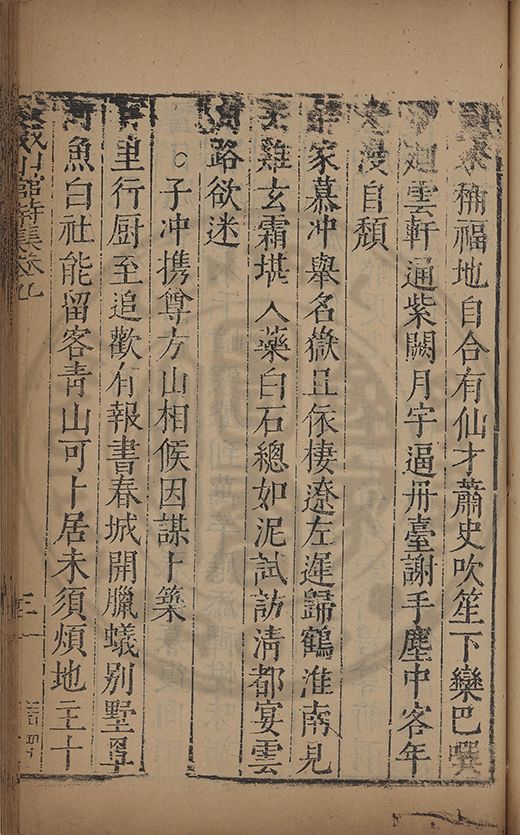 來稱福地自合有仙才蕭史吹笙下欒巴噀
迴雲軒通紫闕月宇逼丹臺謝手塵中客年
漫自頹
家慕冲舉名嶽且依棲遼左遲歸鶴淮南見
雞玄霜堪入藥白石總如泥試訪清都宴雲
路欲迷
○子冲携尊方山相候因謀卜築
里行厨至追歡有報書春城開臘蟻别墅罩
魚白社能留客青山可卜居未須煩地主十
山館詩集卷九